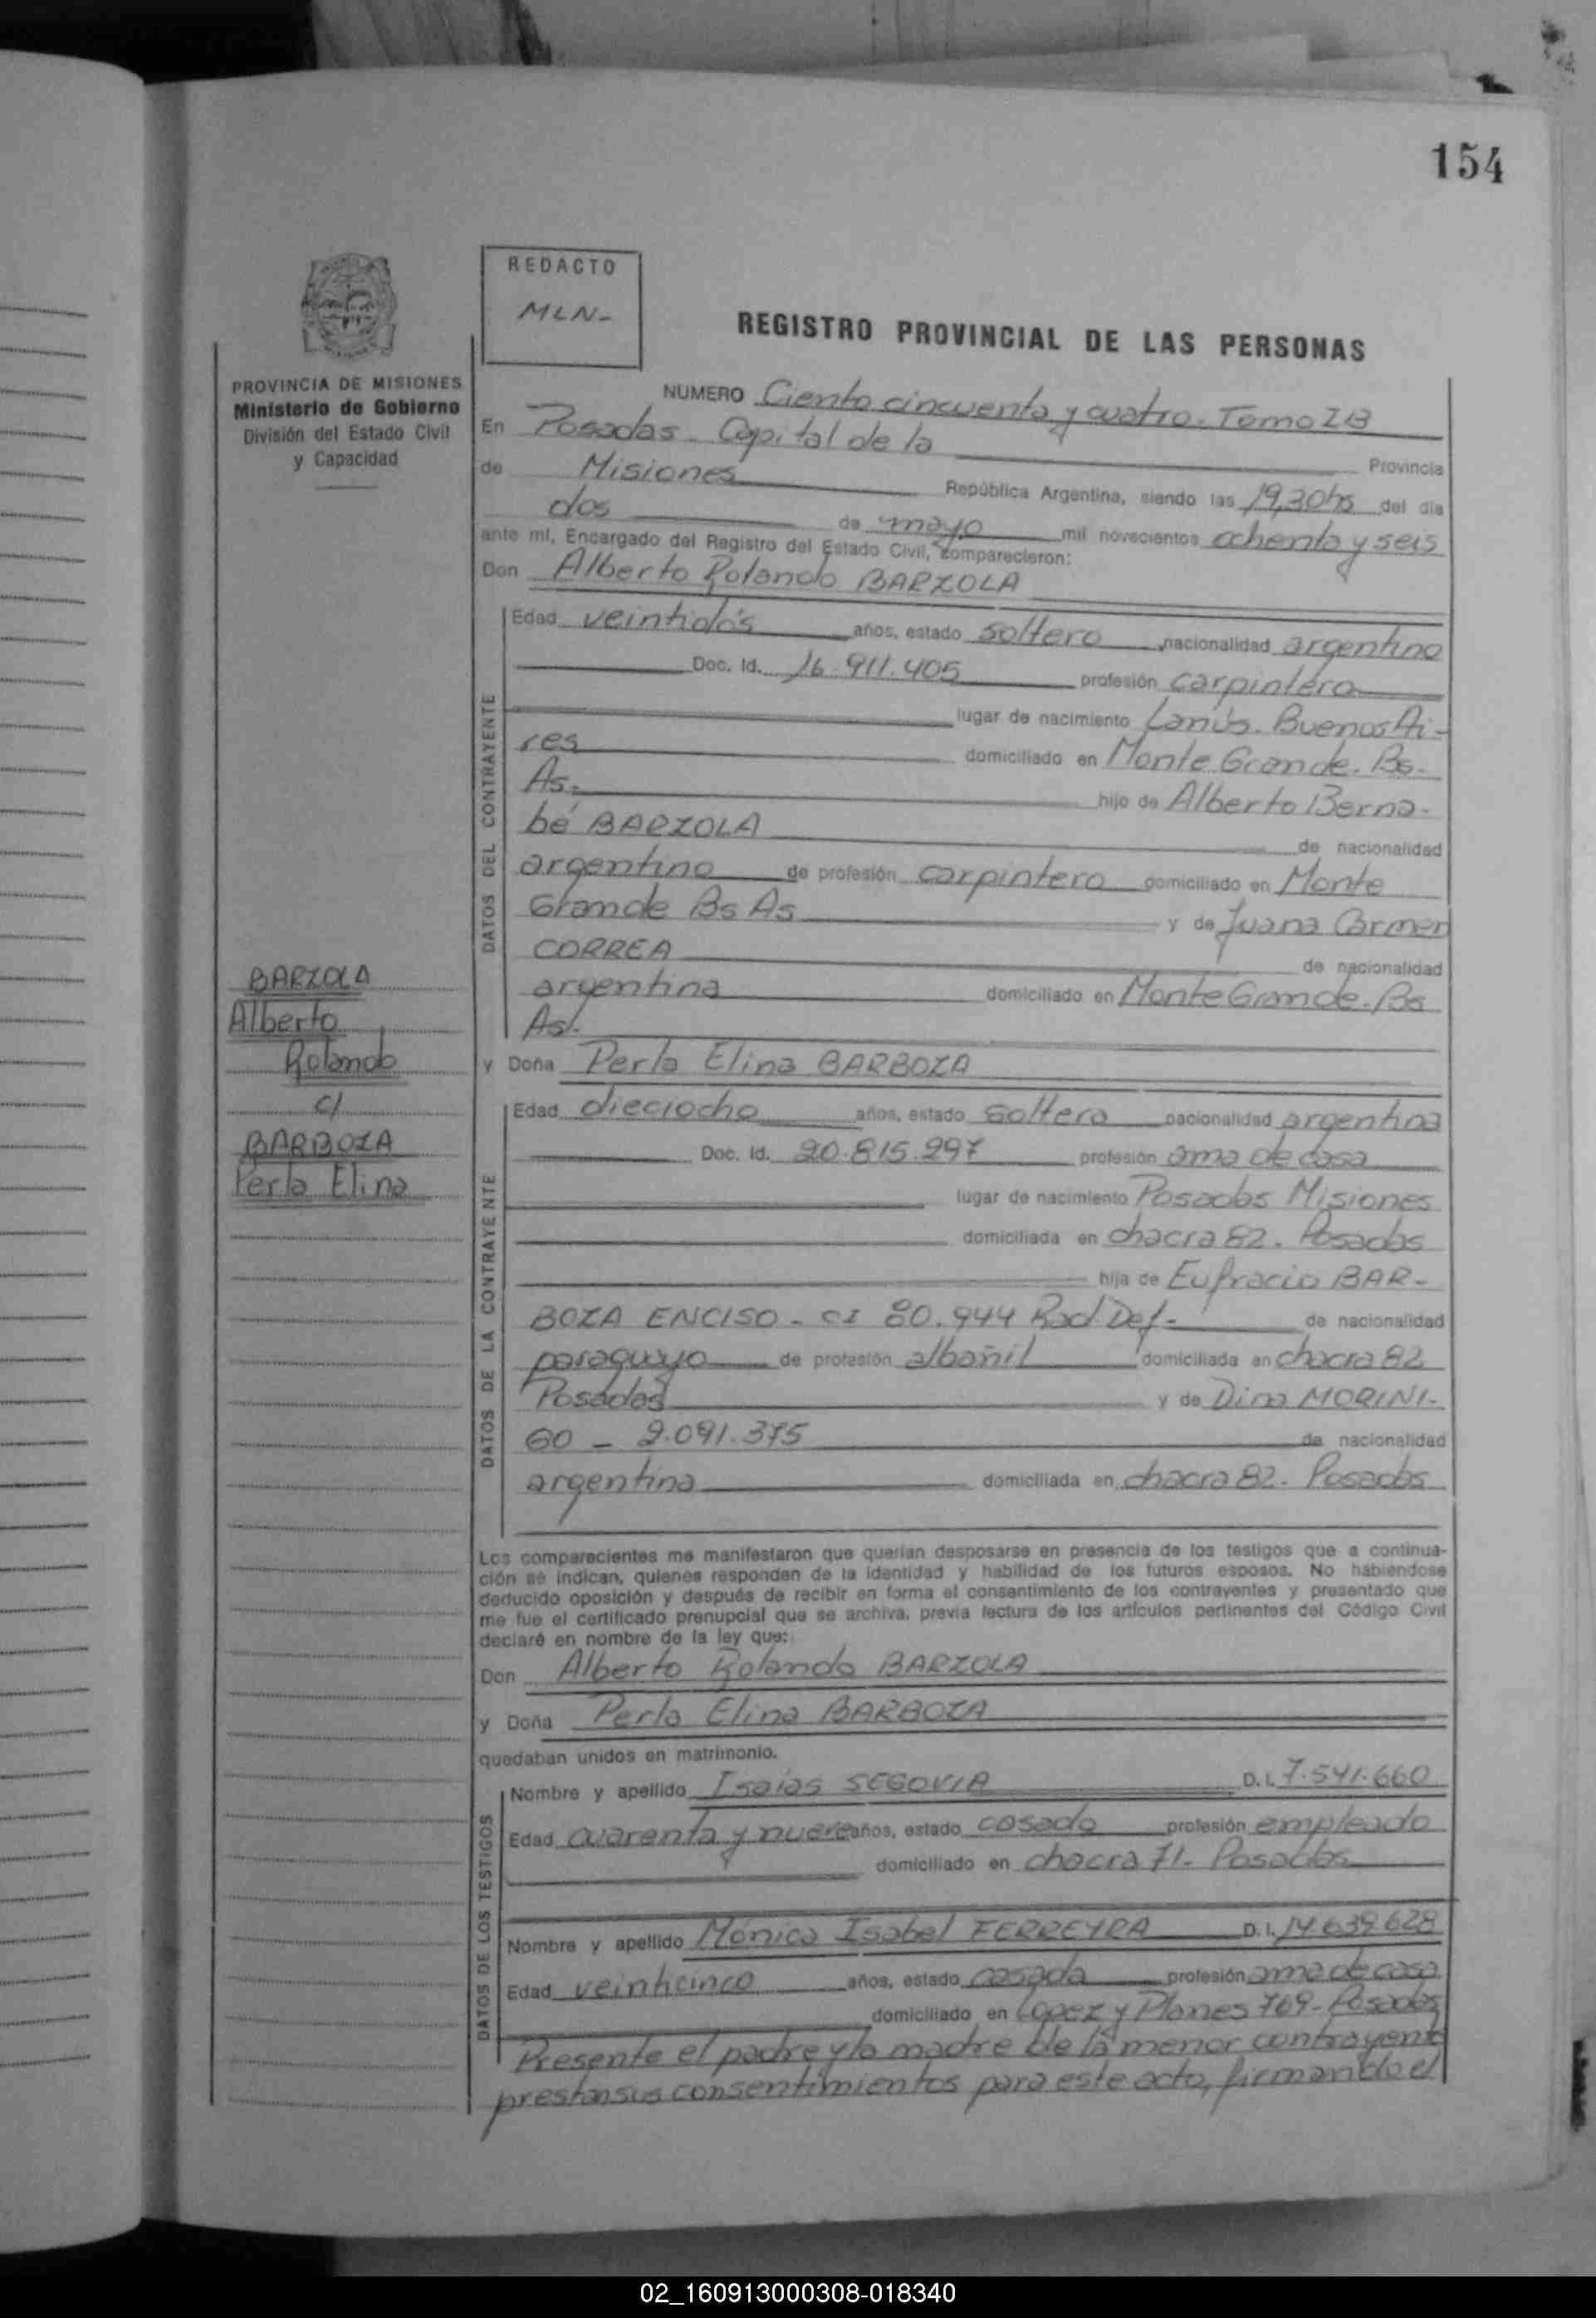 154
REDACTO
MLN-
REGISTRO PROVINCIAL DE LAS PERSONAS
PROVINCIA DE MISIONES
Ministerio de Gobierno
División del Estado Civil
y Capacidad
NUMERO Ciento cincuenta y cuatro. Tomo
En Posadas. Capital de la Provincia
de Misiones República Argentina, siendo las 19,30hs del dia
dos de mayo mil novecientos ochenta y seis
ante mí, Encargado del Registro del Estado Civil, comparecieron:
Don Alberto Rolando BARZOLA
DATOS DEL CONTRAYENTE
Edad veintidós años, estado soltero nacionalidad argentino
Doc. Id. 16.911.405 profesión carpintero
lugar de nacimiento Lanús. Buenos Ai-
res domiciliado en Monte Grande. Bs.
As. hijo de Alberto Berna-
bé BARZOLA de nacionalidad
argentino de profesión carpintero domiciliado en Monte
Grande Bs As y de Juana Carmen
CORREA de nacionalidad
argentina domiciliado en Monte Grande. Bs
As.
BARZOLA
Alberto
Rolando
c/
BARBOZA
Perla Elina
y Doña Perla Elina BARBOZA
DATOS DE LA CONTRAYENTE
Edad dieciocho años, estado soltera nacionalidad argentina
Doc. Id. 20.815.297 profesión ama de casa
lugar de nacimiento Posadas Misiones
domiciliada en chacra 82. Posadas
hija de Eufracio BAR-
BOZA ENCISO - CI 80.944 Rad Def- de nacionalidad
paraguayo de profesión albañil domiciliada en chacra 82
Posadas y de Dina MORINI-
GO - 2.091.375 de nacionalidad
argentina domiciliada en chacra 82. Posadas
Los comparecientes me manifestaron que querían desposarse en presencia de los testigos que a continua-
ción se indican, quienes responden de la identidad y habilidad de los futuros esposos. No habiéndose
deducido oposición y después de recibir en forma el consentimiento de los contrayentes y presentado que
me fue el certificado prenupcial que se archiva, previa lectura de los artículos pertinentes del Código Civil
declaré en nombre de la ley que:
Don Alberto Rolando BARZOLA
y Doña Perla Elina BARBOZA
quedaban unidos en matrimonio.
DATOS DE LOS TESTIGOS
Nombre y apellido Isaías SEGOVIA D.I. 7.541.660
Edad cuarenta y nueve años, estado casado profesión empleado
domiciliado en chacra 71. Posadas
Nombre y apellido Mónica Isabel FERREYRA D.I. 14.639.628
Edad veinticinco años, estado casada profesión ama de casa
domiciliado en Lopez y Planes 769-Posadas
Presente el padre y la madre de la menor contrayente
prestan sus consentimientos para este acto, firmando el
02_160913000308-018340